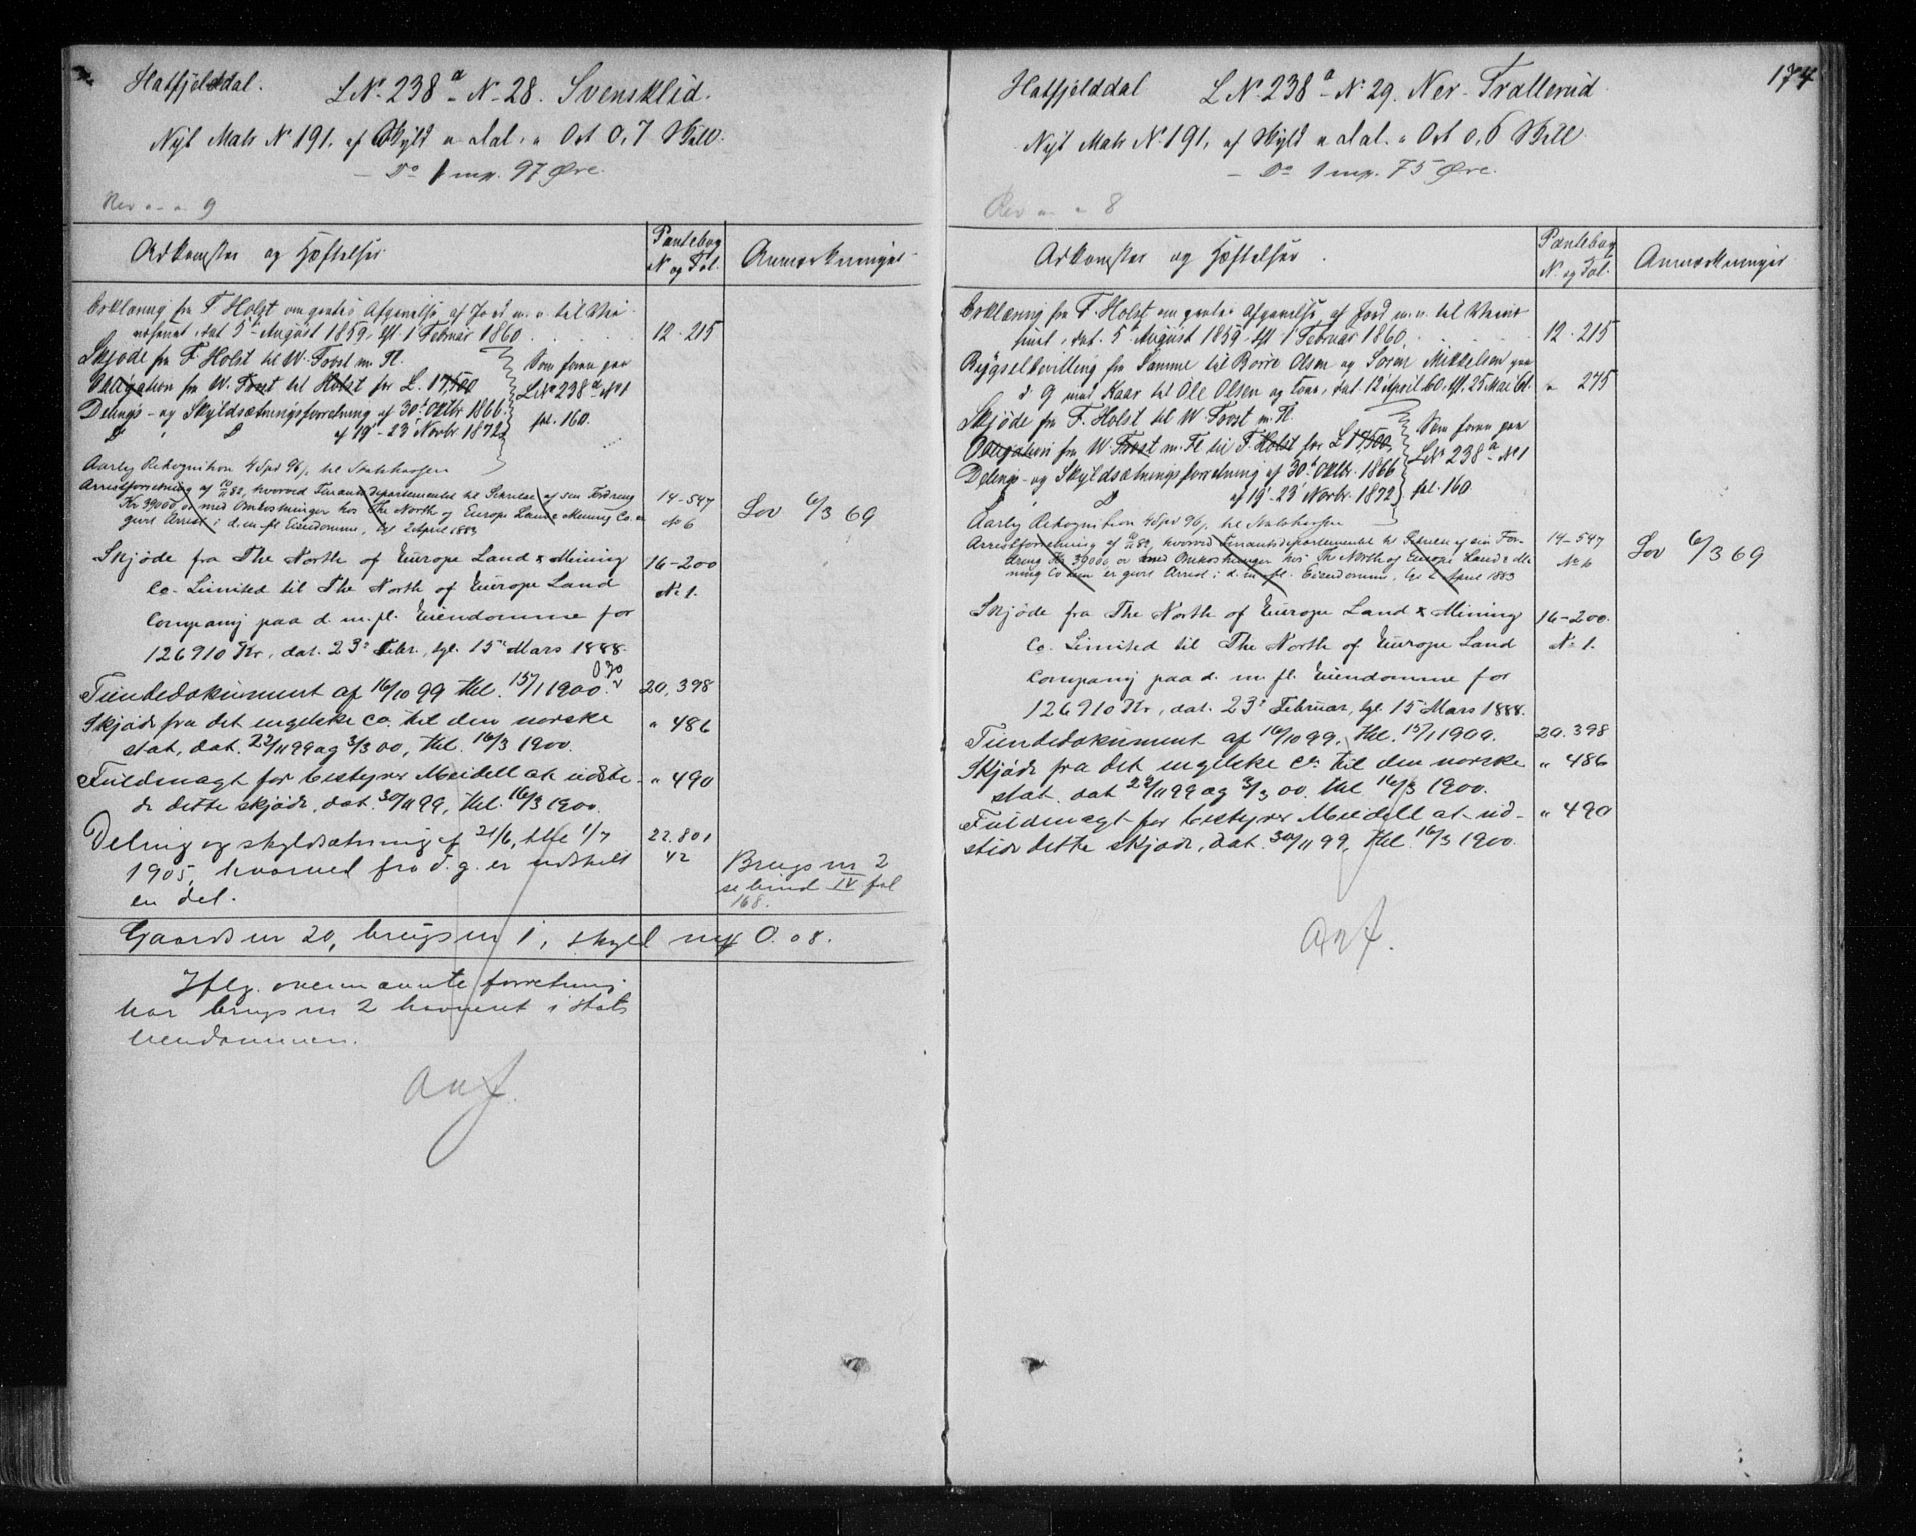 Hatfjelddal. LNo. 238 a - No 28. Svensklid.
Nyt Matr No 191, af Skyld " Dal. " Ort 0,7 Skill.
- Do 1 mp. 97 Øre.
Rev " - " 9
Adkomster og Hæftelser
Pantebog
N og Fol.
Anmærkninger
Erklæring fra F Holst om gratis Afgivelse af Jord m. v. til
dat 5te August 1859, tgl. 1 Februar 1860
12-215
Skjøde fra F. Holst til W. Foost m. Fl.
Obligation fra W. Foost til Holst for £. 17,500
Delings- og Skyldsætningsforretning af 30te Oktbr 1866.
D D af 19-23 Novbr. 1872
Som foran paa
LNo 238 a No 1
fol. 160.
Aarlig Rekognition 4 Spd 96 s, til Statskassen
Arrestforretning af 10/11 82, hvorved Finantsdepartementet til Sikrelse af sin Fordring
Kr 39000,00 med Omkostninger hos The North of Europe Land & Mining Co. er
gjort Arrest i d. m. fl. Eiendomme, tgl 2 April 1883
14-547
No 6
Lov 6/3 69
Skjøde fra The North of Europe Land & Mining
Co. Limited til The North of Europe Land
Company paa d. m. fl. Eiendomme for
126910 Kr, dat. 23' Febr., tgl. 15' Mars 1888.
16-200
No 1.
Tiendedokument af 16/10 99 thl. 15/1 1900.
20, 398
Skjøde fra det engelske Co. til den norske
stat, dat. 22/11 99 og 3/3 00, thl. 16/3 1900.
" 486
Fuldmagt for bestyrer Meidell at udste-
de dette skjøde, dat. 30/11 99, thl. 16/3 1900.
" 490
Deling og skyldsætning af 21/6, thl 1/7
1905, hvorved fra d. g. er udskilt
en del.
22.801
42
Brugs nr 2
se bind IV fol
168.
Gaards nr 20, brugs nr 1, skyld mrk 0.08.
Iflg. ovennævnte forretning
har brugs nr 2 havneret i stats
eiendommen.
Anf.
174
Hatfjelddal LNo. 238 a - No. 29. Ner-Trallerud
Nyt Matr No. 191, af Skyld " Dal. " Ort 0,6 Skill.
- Do 1 mp. 75 Øre.
Rev " " 8
Adkomster og Hæftelser.
Pantebog
N. og Fol.
Anmærkninger
Erklæring fra F. Holst om gratis Afgivelse af Jord m. v. til
dat. 5te August 1859 tgl. 1 Februar 1860.
12-215
Bygselbevilling fra Samme til Børre Olsen og Søren Mikkelsen paa
d 9 mod Kaar til Ole Olsen og Kone, dat. 12 April 60, tgl. 25 Mai 61.
" 275
Skjøde fra F. Holst til W. Foost m. Fl.
Obligation fra W Foost m. Fl til F. Holst for £ 17,500,
Delings- og Skyldsætningsforretning af 30te Oktbr. 1866
D D af 19-23 Novbr. 1872
Som foran paa
LNo 238 a - No 1
fol. 160
Aarlig Rekognition 4 Spd 96 s, til Statskassen
Arrestforretning af 10/11 82, hvorved Finantsdepartementet til Sikrelse af sin For-
dring Kr 39000,00 med Omkostninger hos The North of Europe Land & Mi-
ning Co er gjort Arrest i d. m. fl. Eiendomme, tgl 2 April 1883
14-547
No 6
Lov 6/3 69
Skjøde fra The North of Europe Land & Mining
Co. Limited til The North of Europe Land
Company paa d. m. fl. Eiendomme for
126910 Kr, dat. 23' Februar, tgl. 15 Mars 1888.
16-200.
No 1.
Tiendedokument af 16/10 99, thl. 15/1 1900.
20. 398
Skjøde fra det engelske Co. til den norske
stat, dat 22/11 99 og 3/3 00. thl 16/3 1900.
" 486
Fuldmagt for bestyrer Meidell at ud-
stede dette skjøde, dat. 30/11 99, thl. 16/3 1900.
" 490
Anf.